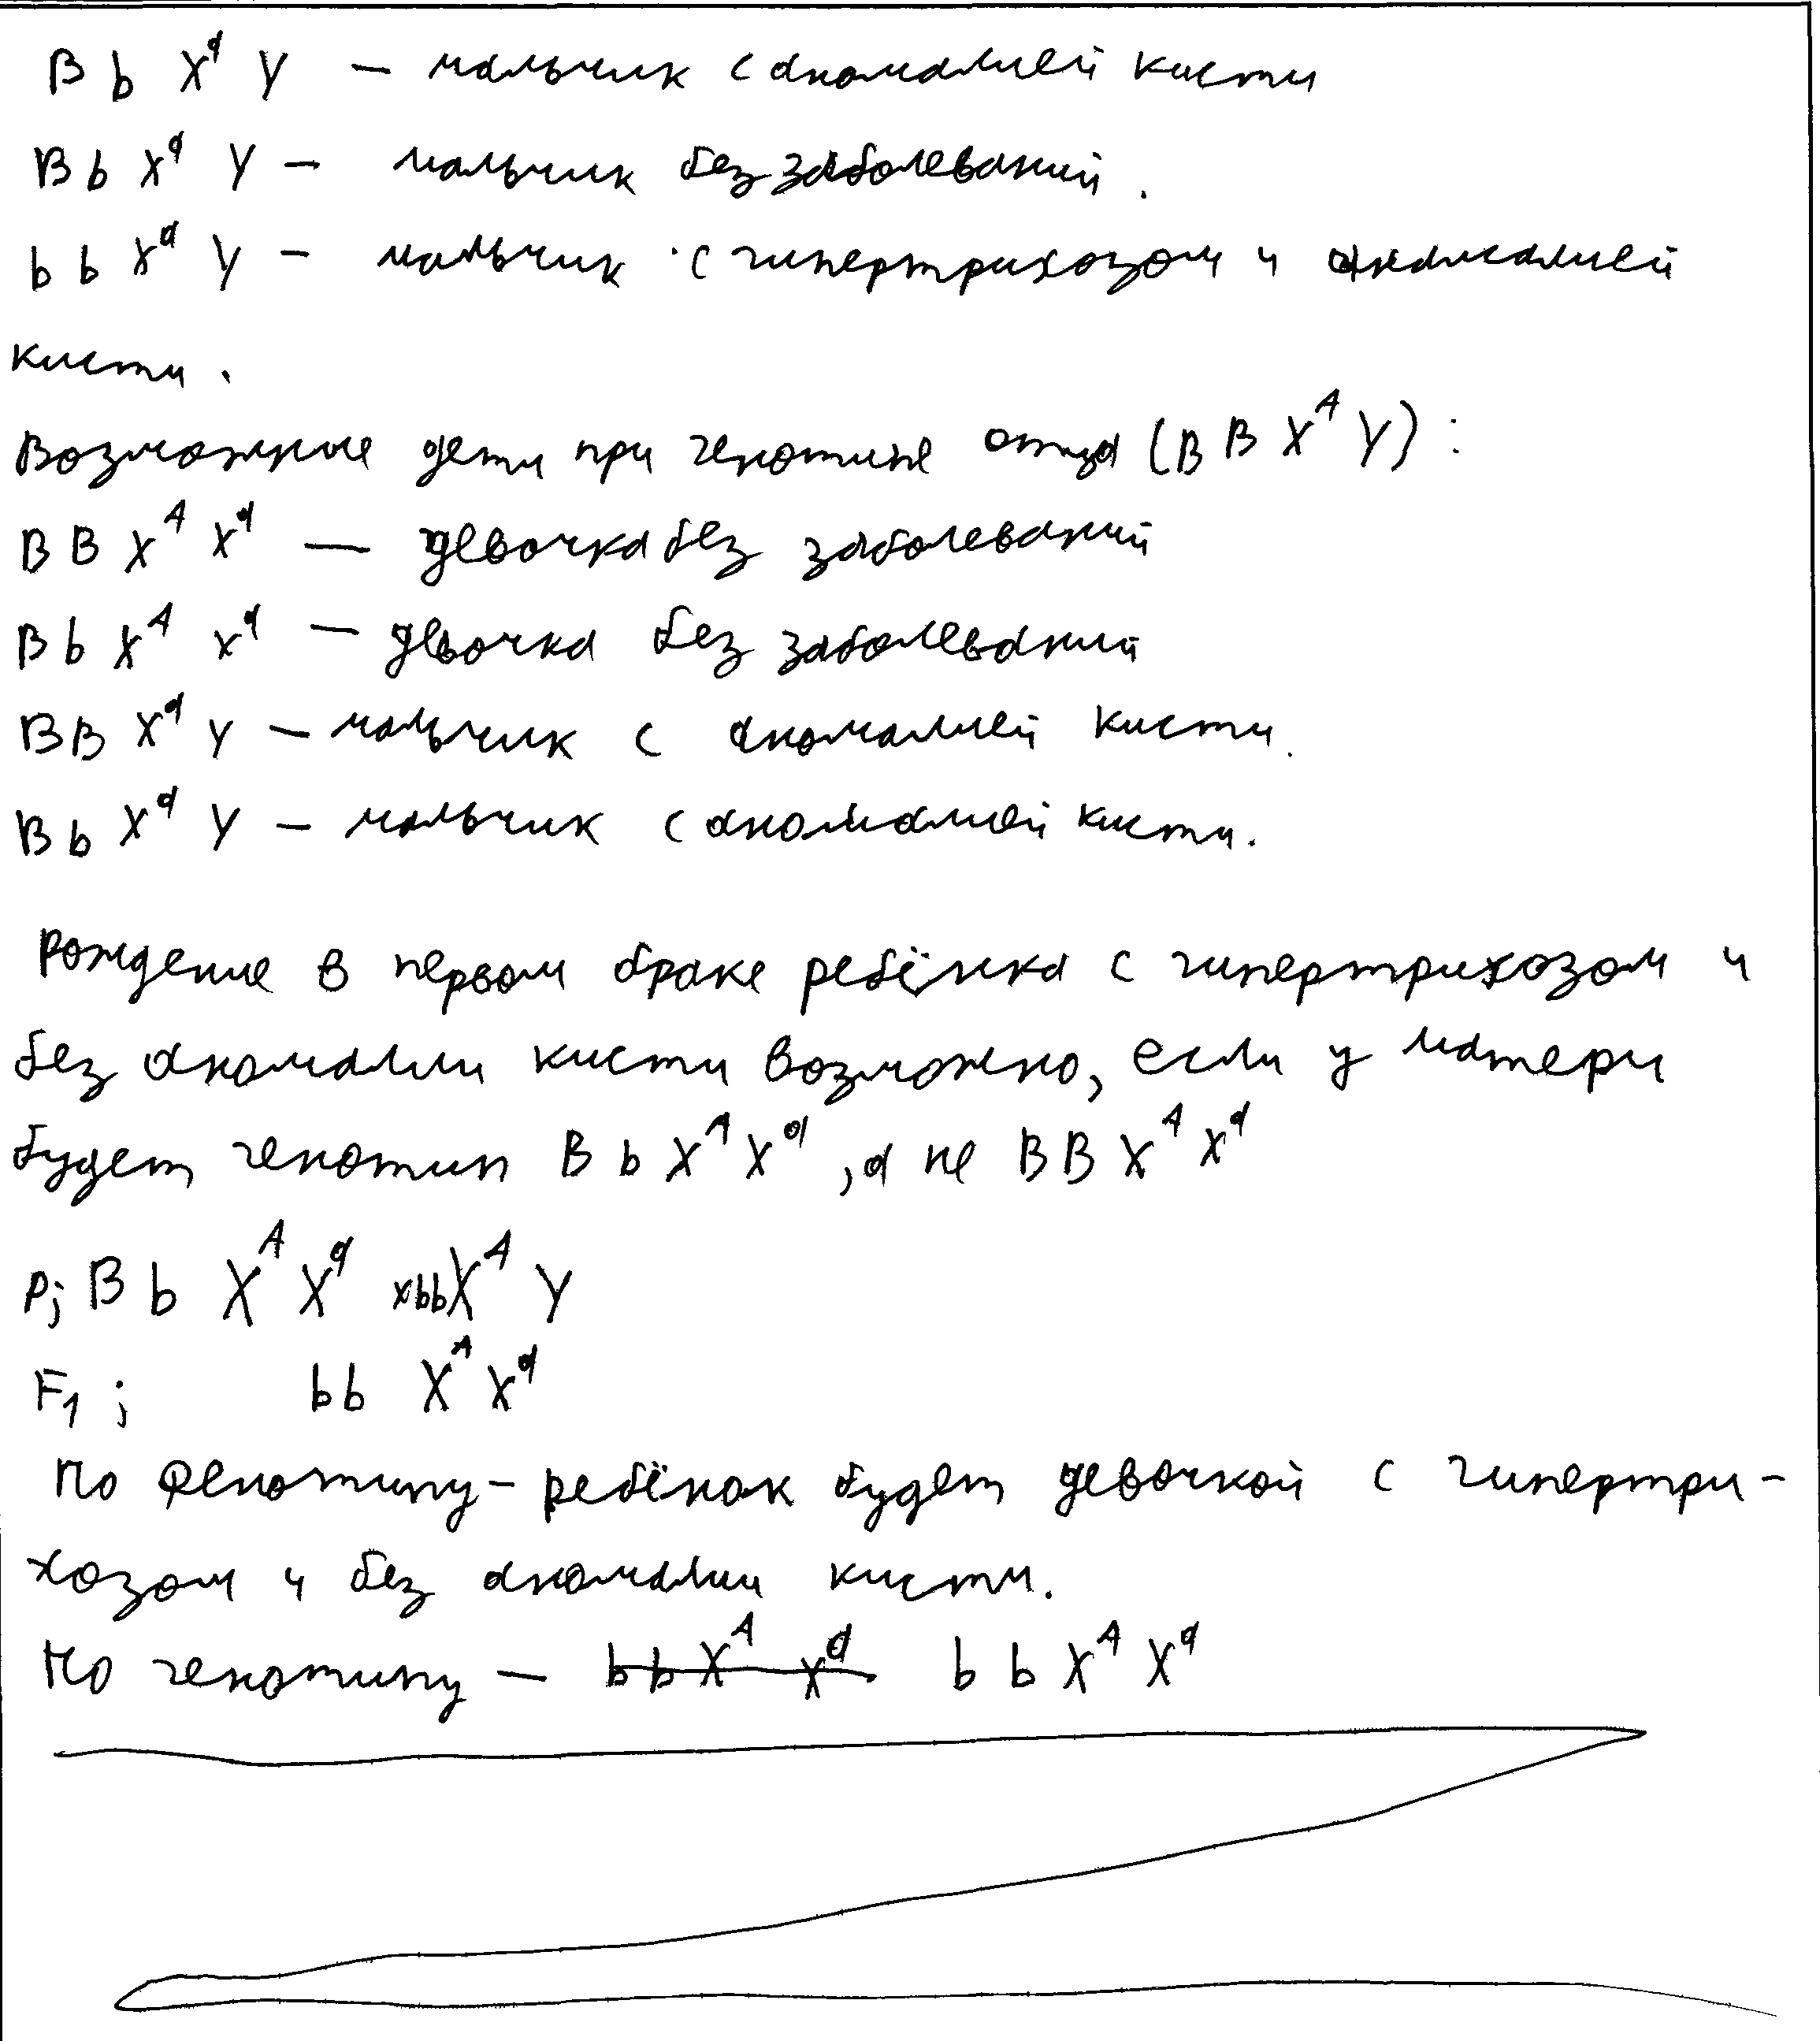 B b X^a Y — мальчик с аномалией кисти
B b X^a Y — мальчик без заболеваний.
b b X^a Y — мальчик с гипертрихозом и аномалией
кисти.
Возможные дети при генотипе отца (B B X^A Y):
B B X^A X^a — девочка без заболеваний
B b X^A X^a — девочка без заболеваний
B B X^a Y — мальчик с аномалией кисти.
B b X^a Y — мальчик с аномалией кисти.
Рождение в первом браке ребёнка с гипертрихозом и
без аномалии кисти возможно, если у матери
будет генотип B b X^A X^a, а не B B X^A X^a
P; B b X^A X^a x bb X^A Y
F1; bb X^A X^a
По фенотипу - ребёнок будет девочкой с гипертри-
хозом и без аномалии кисти.
По генотипу — b b X^A X^a b b X^A X^a